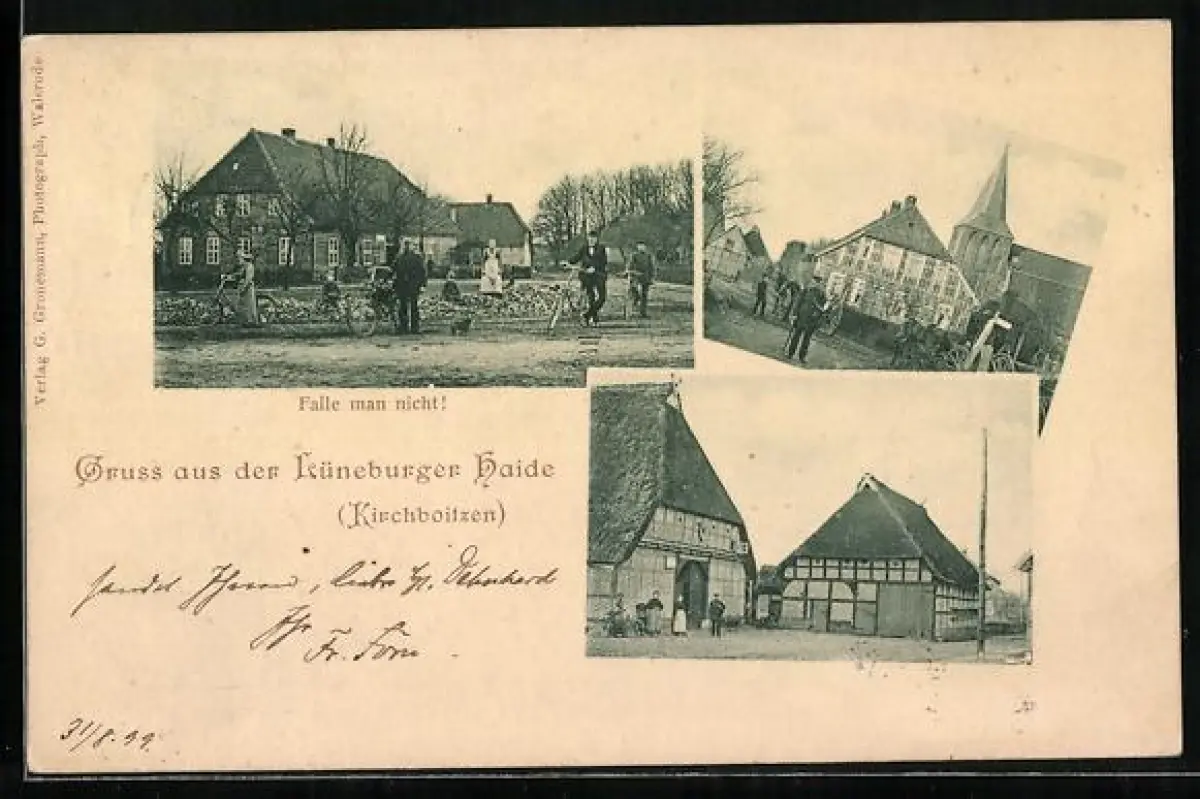 Verlag G. Gronemann, Photograph, Walsrode
Falle man nicht!
Gruss aus der Lüneburger Haide
(Kirchboitzen)
sendet Ihnen, lieber
Ihr
Fr.
31/8. 99.